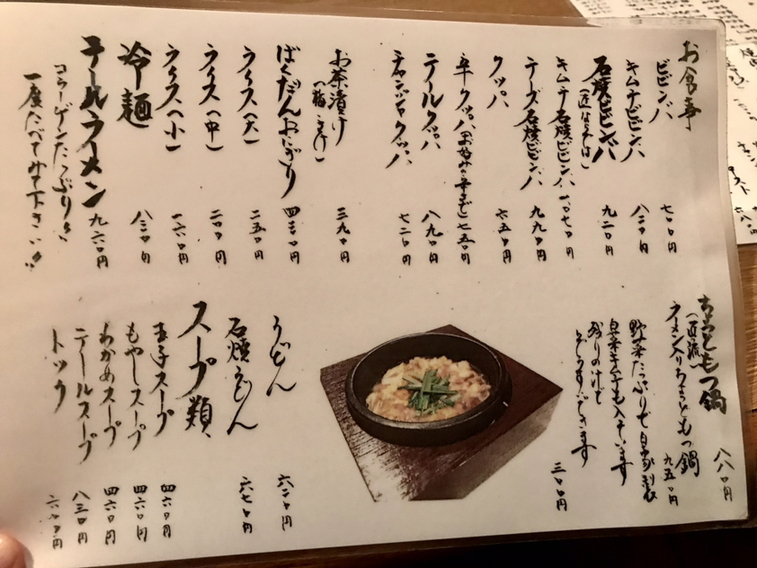 お食事
ビビンバ 七〇〇円
キムチビビンバ 八二〇円
石焼ビビンバ 九二〇円
キムチ石焼ビビンバ 一〇七〇円
チーズ石焼ビビンバ 九九〇円
クッパ 六五〇円
牛クッパ(お好みの辛さで) 七五〇円
テールクッパ 八九〇円
チャンジャクッパ 七二〇円
お茶漬け 三九〇円
ばくだんおにぎり 四三〇円
ライス(大) 二五〇円
ライス(中) 二〇〇円
ライス(小) 一六〇円
冷麺 八三〇円
テールラーメン 九六〇円
コラーゲンたっぷり!!
一度たべてみて下さい!!
ちょっともつ鍋 八八〇円
(匠流)
ラーメン入りちょっともつ鍋 九五〇円
野菜たっぷりで自家製
白菜キムチも入ています
残りの汁で
ぞうすいできます 三〇〇円
うどん 六二〇円
石焼うどん 六七〇円
スープ類
玉子スープ 四六〇円
もやしスープ 四六〇円
わかめスープ 四六〇円
テールスープ 八三〇円
トック 六〇〇円